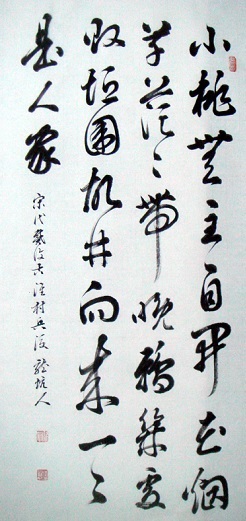 小桃無主自開花烟
草茫〻帶晚鴉幾處
敗垣圍故井向來一〻
是人家
宋代戴復古淮村兵後